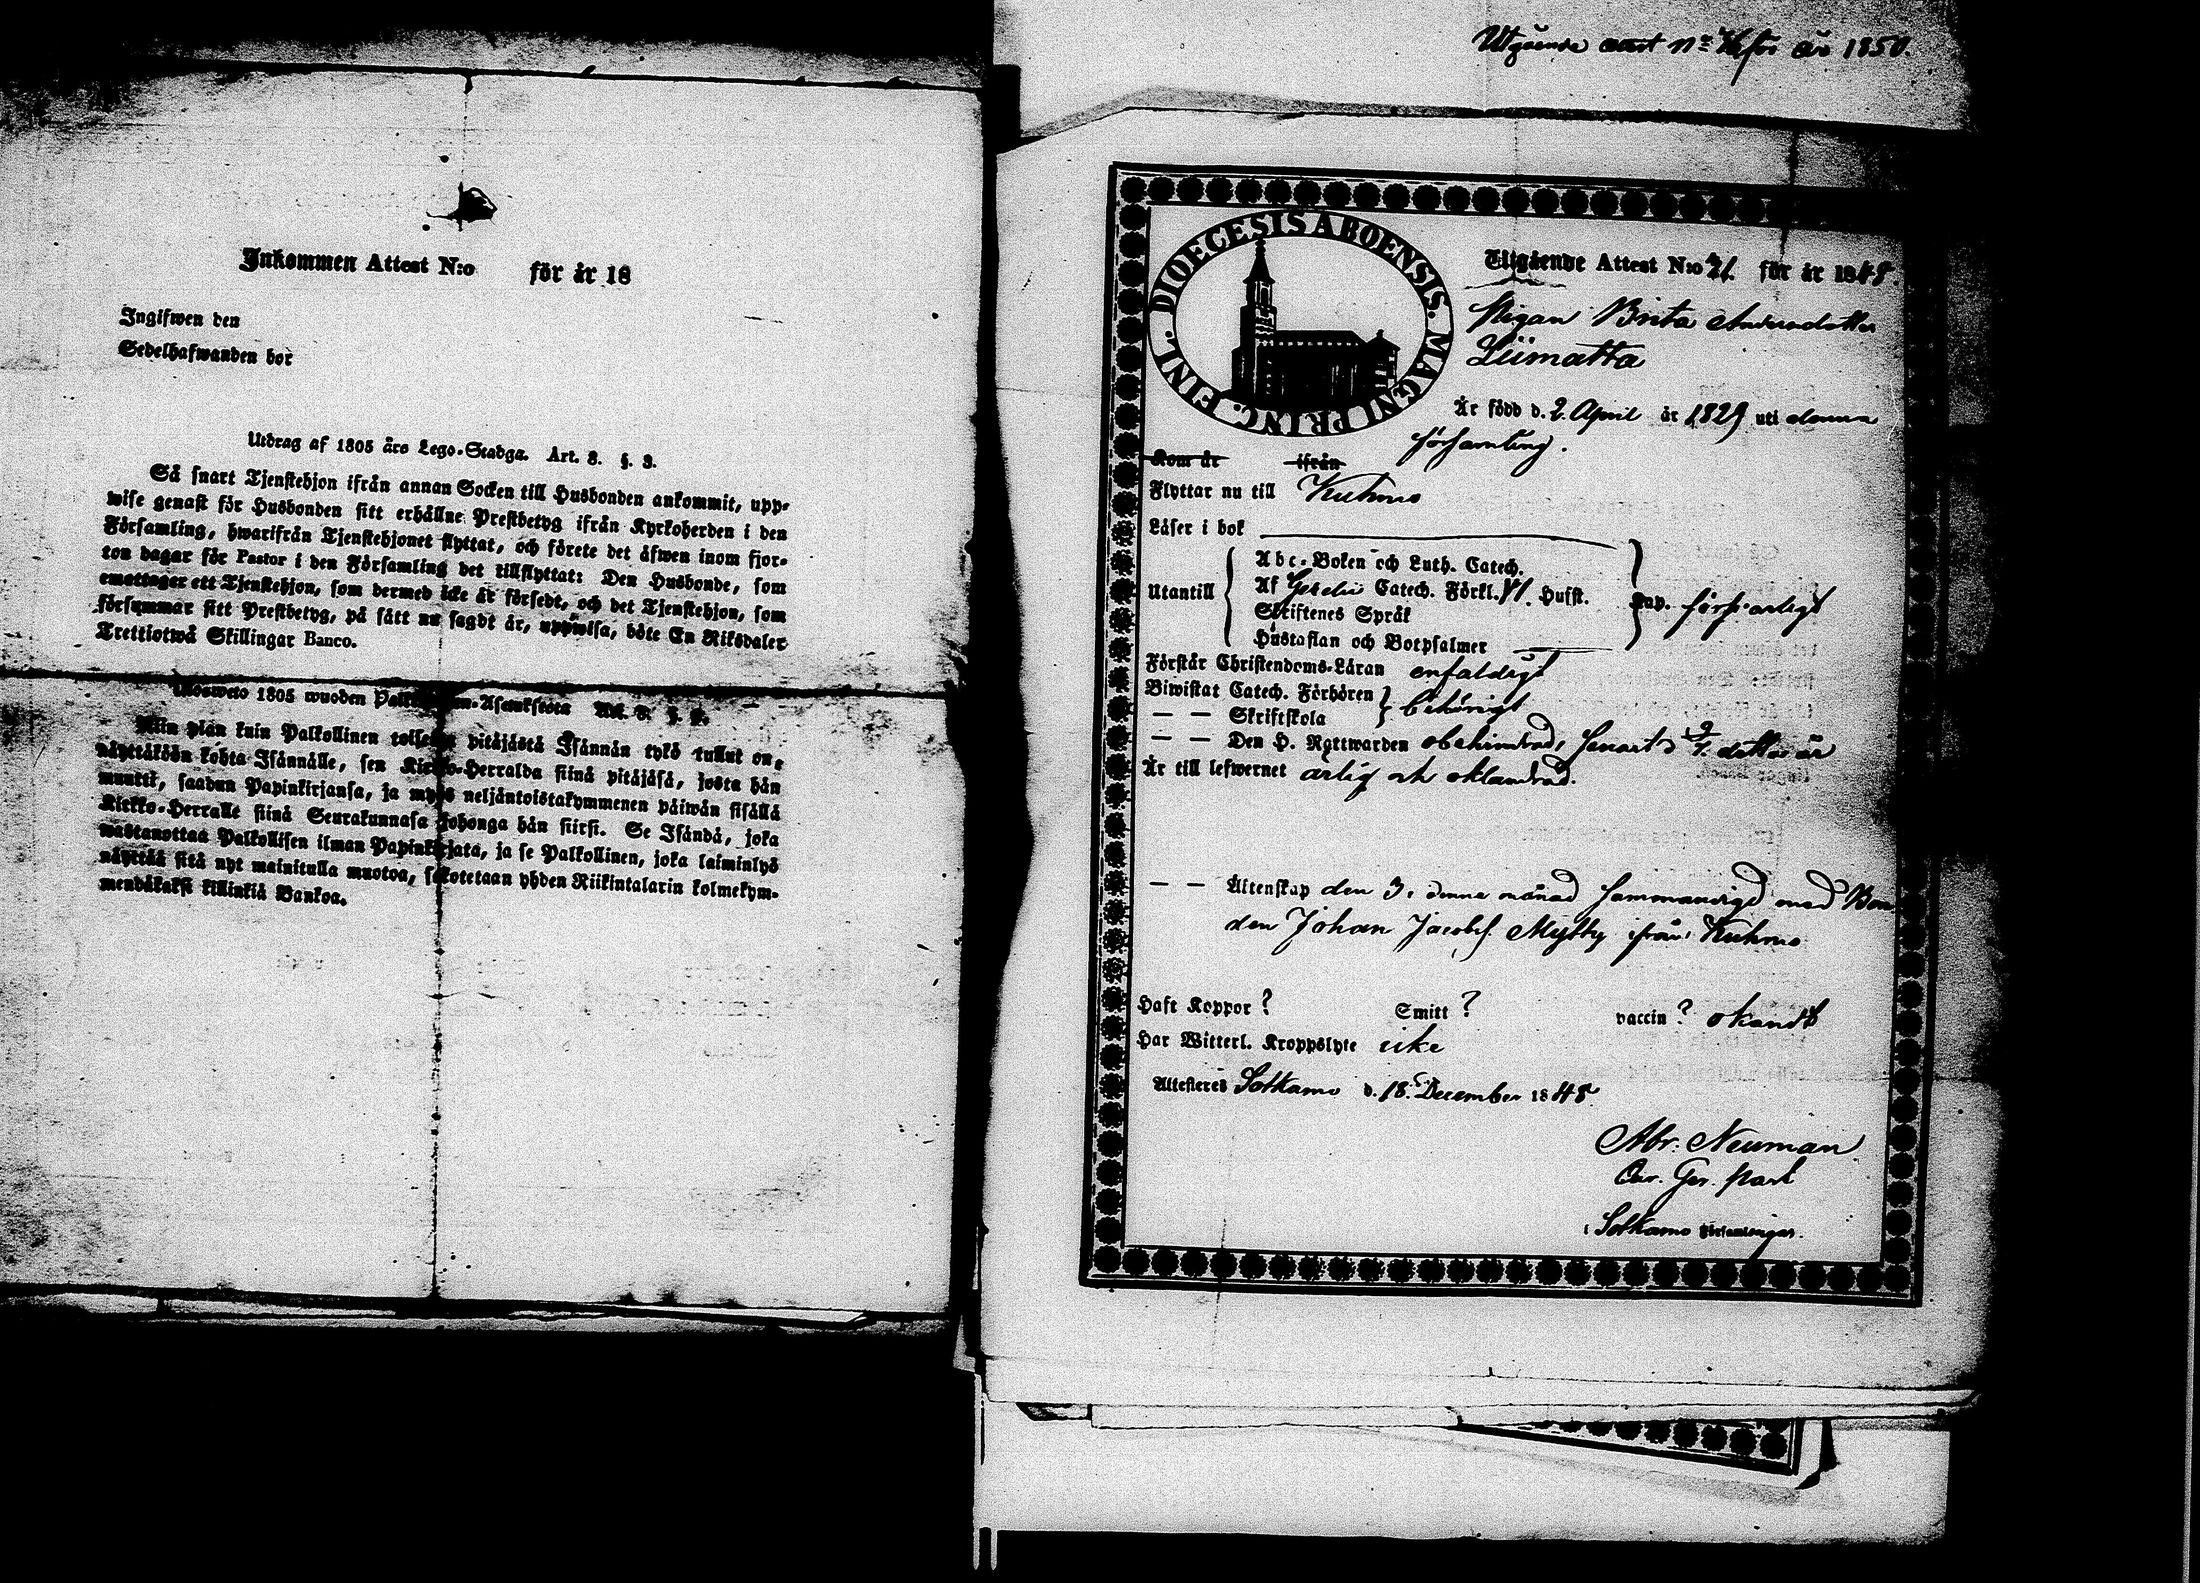 Inkommen Attest N:o för år 18
Ingifwen den
Sedelhafwanden bor
Utdrag af 1805 års Lego-Stadga. Art. 8. §. 3.
Så snart Tjenstehjon ifrån annan Socken till Husbonden ankommit, upp-
wise genast för Husbonden sitt erhållne Prestbetyg ifrån Kyrkoherden i den
Församling, hwarifrån Tjenstehjonet flyttat, och förete det äfwen inom fjor-
ton dagar för Pastor i den Församling det tillflyttat: Den Husbonde, som
emottager ett Tjenstehjon, som dermed icke är försedt, och det Tjenstehjon, som
försummar sitt Prestbetyg, på sätt nu sagdt är, uppwisa, böte En Riksdaler
Trettiotwå Skillingar Banco.
1805 wuoden
Niin pian kuin Palkollinen toisesta pitäjästä Isännän tykö tullut on,
näyttäköön kohta Isännälle, sen Kirkko-Herralda siinä pitäjäsä, josta hän
muutti, saadun Papinkirjansa, ja myös neljäntoistakymmenen päiwän sisällä
Kirkko-Herralle siinä Seurakunnasa johonga hän siirsi. Se Isändä, joka
wastanottaa Palkollisen ilman Papinkirjata, ja se Palkollinen, joka laiminlyö
näyttää sitä nyt mainitulla muotoa, sakotetaan yhden Riikintalarin kolmekym-
mendäkaksi killinkiä Bankoa.
Utgående attest n:o för år 1850.
DIOECESIS ABOENSIS. MAGNI PRINC. FINL.
Utgående Attest N:o 21. för år 1848.
Pigan Brita Andersdotter
Liimatta
Är född d. 2. April år 1829 uti denna
församling.
Kom år ifrån
Flyttar nu till Kuhmo
Läser i bok
Abc-Boken och Luth. Catech.
Utantill Af Gezelii Catech. Förkl. Hufst.
Skriftenes Språk
Hustaflan och Botpsalmer
försvarligt
Förstår Christendoms-Läran enfaldigt
Biwistat Catech. Förhören behörigt
— — Skriftskola
— — Den H. Nattwarden obehindrad, senast d. detta år
Är till lefwernet ärlig och oklandrad.
— — Äktenskap den 3. denne månad sammanvigd med Bon
den Johan Jacobs. Mylly ifrån Kuhmo
Haft Koppor ? Smitt ? vaccin ? okändt
Har Witterl. Kroppslyte icke
Attesteres Sotkamo d. 18. December 1848.
Abr. Neuman
i Sotkamo Församlingar.